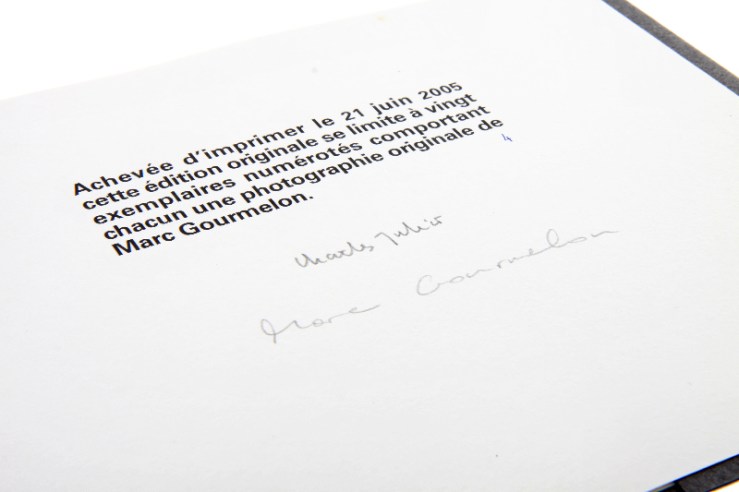 Achevée d'imprimer le 21 juin 2005
cette édition originale se limite à vingt
exemplaires numérotés comportant
chacun une photographie originale de
Marc Gourmelon.
4
Charles Juliet
Marc Gourmelon